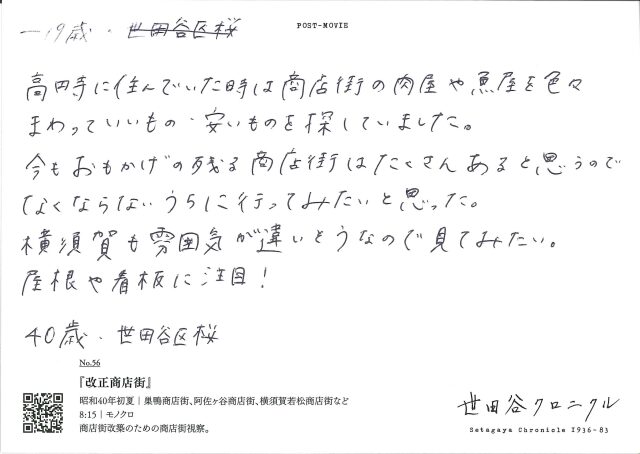 一19歳・世田谷区桜
POST-MOVIE
高円寺に住んでいた時は商店街の肉屋や魚屋を色々
まわっていいもの・安いものを探していました。
今もおもかげの残る商店街はたくさんあると思うので
なくならないうちに行ってみたいと思った。
横須賀も雰囲気が違いそうなので見てみたい。
屋根や看板に注目!
40歳・世田谷区桜
No.56
『改正商店街』
昭和40年初夏|巣鴨商店街、阿佐ヶ谷商店街、横須賀若松商店街など
8:15|モノクロ
商店街改築のための商店街視察。
世田谷クロニクル
Setagaya Chronicle 1936-83